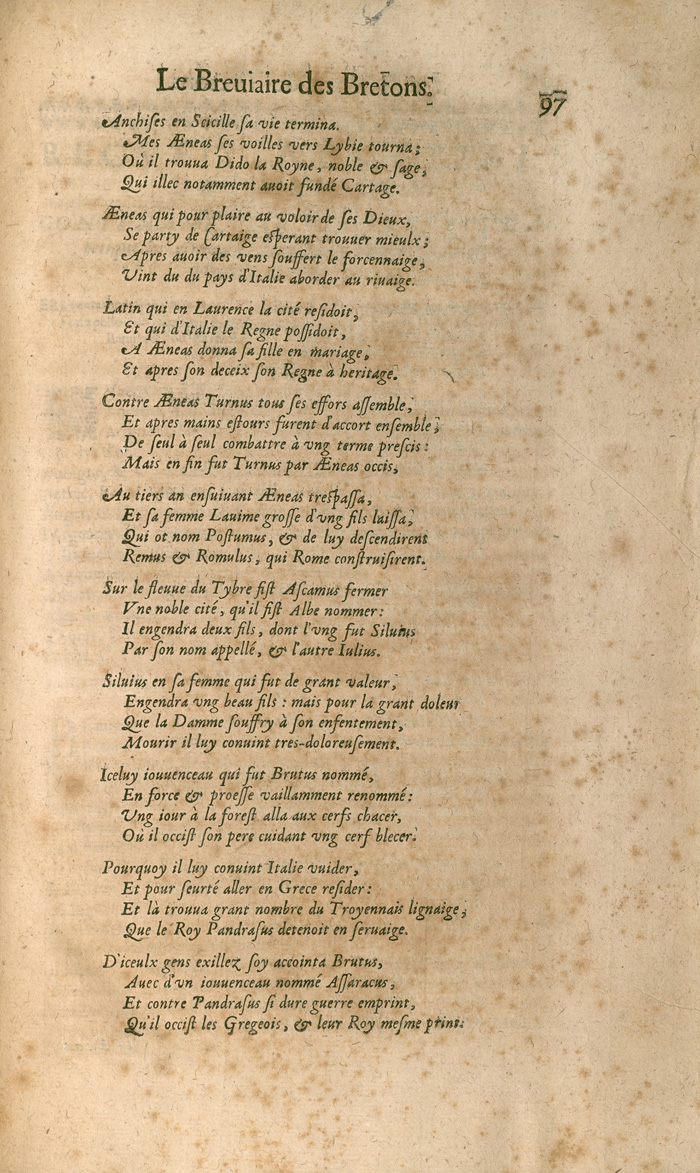 Le Breuiaire des Bretons.
97
Anchiſes en Scicille ſa vie termina.
Mes Æneas ſes voilles vers Lybie tourna;
Où il trouua Dido la Royne, noble & ſage,
Qui illec notamment auoit fundé Cartage.
Æneas qui pour plaire au voloir de ſes Dieux,
Se party de Cartaige eſperant trouuer mieulx;
Apres auoir des vens ſouffert le forcennaige,
Vint du du pays d'Italie aborder au riuaige.
Latin qui en Laurence la cité reſidoit,
Et qui d'Italie le Regne poſſidoit,
A Æneas donna ſa fille en mariage,
Et apres ſon deceix ſon Regne à heritage.
Contre Æneas Turnus tous ſes effors aſſemble,
Et apres mains eſtours furent d'accort enſemble,
De ſeul à ſeul combattre à vng terme preſcis:
Mais en fin fut Turnus par Æneas occis,
Au tiers an enſuiuant Æneas treſpaſſa,
Et ſa femme Lauime groſſe d'vng fils laiſſa,
Qui ot nom Poſtumus, & de luy deſcendirent
Remus & Romulus, qui Rome conſtruiſirent.
Sur le fleuue du Tybre fiſt Aſcamus fermer
Vne noble cité, qu'il fiſt Albe nommer:
Il engendra deux fils, dont l'vng fut Siluius
Par ſon nom appellé, & l'autre Iulius.
Siluius en ſa femme qui fut de grant valeur,
Engendra vng beau fils: mais pour la grant doleur
Que la Damme ſouffry à ſon enfentement,
Mourir il luy conuint tres-doloreuſement.
Iceluy iouuenceau qui fut Brutus nommé,
En force & proeſſe vaillamment renommé:
Vng iour à la foreſt alla aux cerfs chacer,
Où il occiſt ſon pere cuidant vng cerf blecer.
Pourquoy il luy conuint Italie vuider,
Et pour ſeurté aller en Grece reſider:
Et là trouua grant nombre du Troyennais lignaige,
Que le Roy Pandraſus detenoit en ſeruaige.
D'iceulx gens exillez ſoy accointa Brutus,
Auec d'vn iouuenceau nommé Aſſaracus,
Et contre Pandraſus ſi dure guerre emprint,
Qu'il occiſt les Gregeois, & leur Roy meſme print.